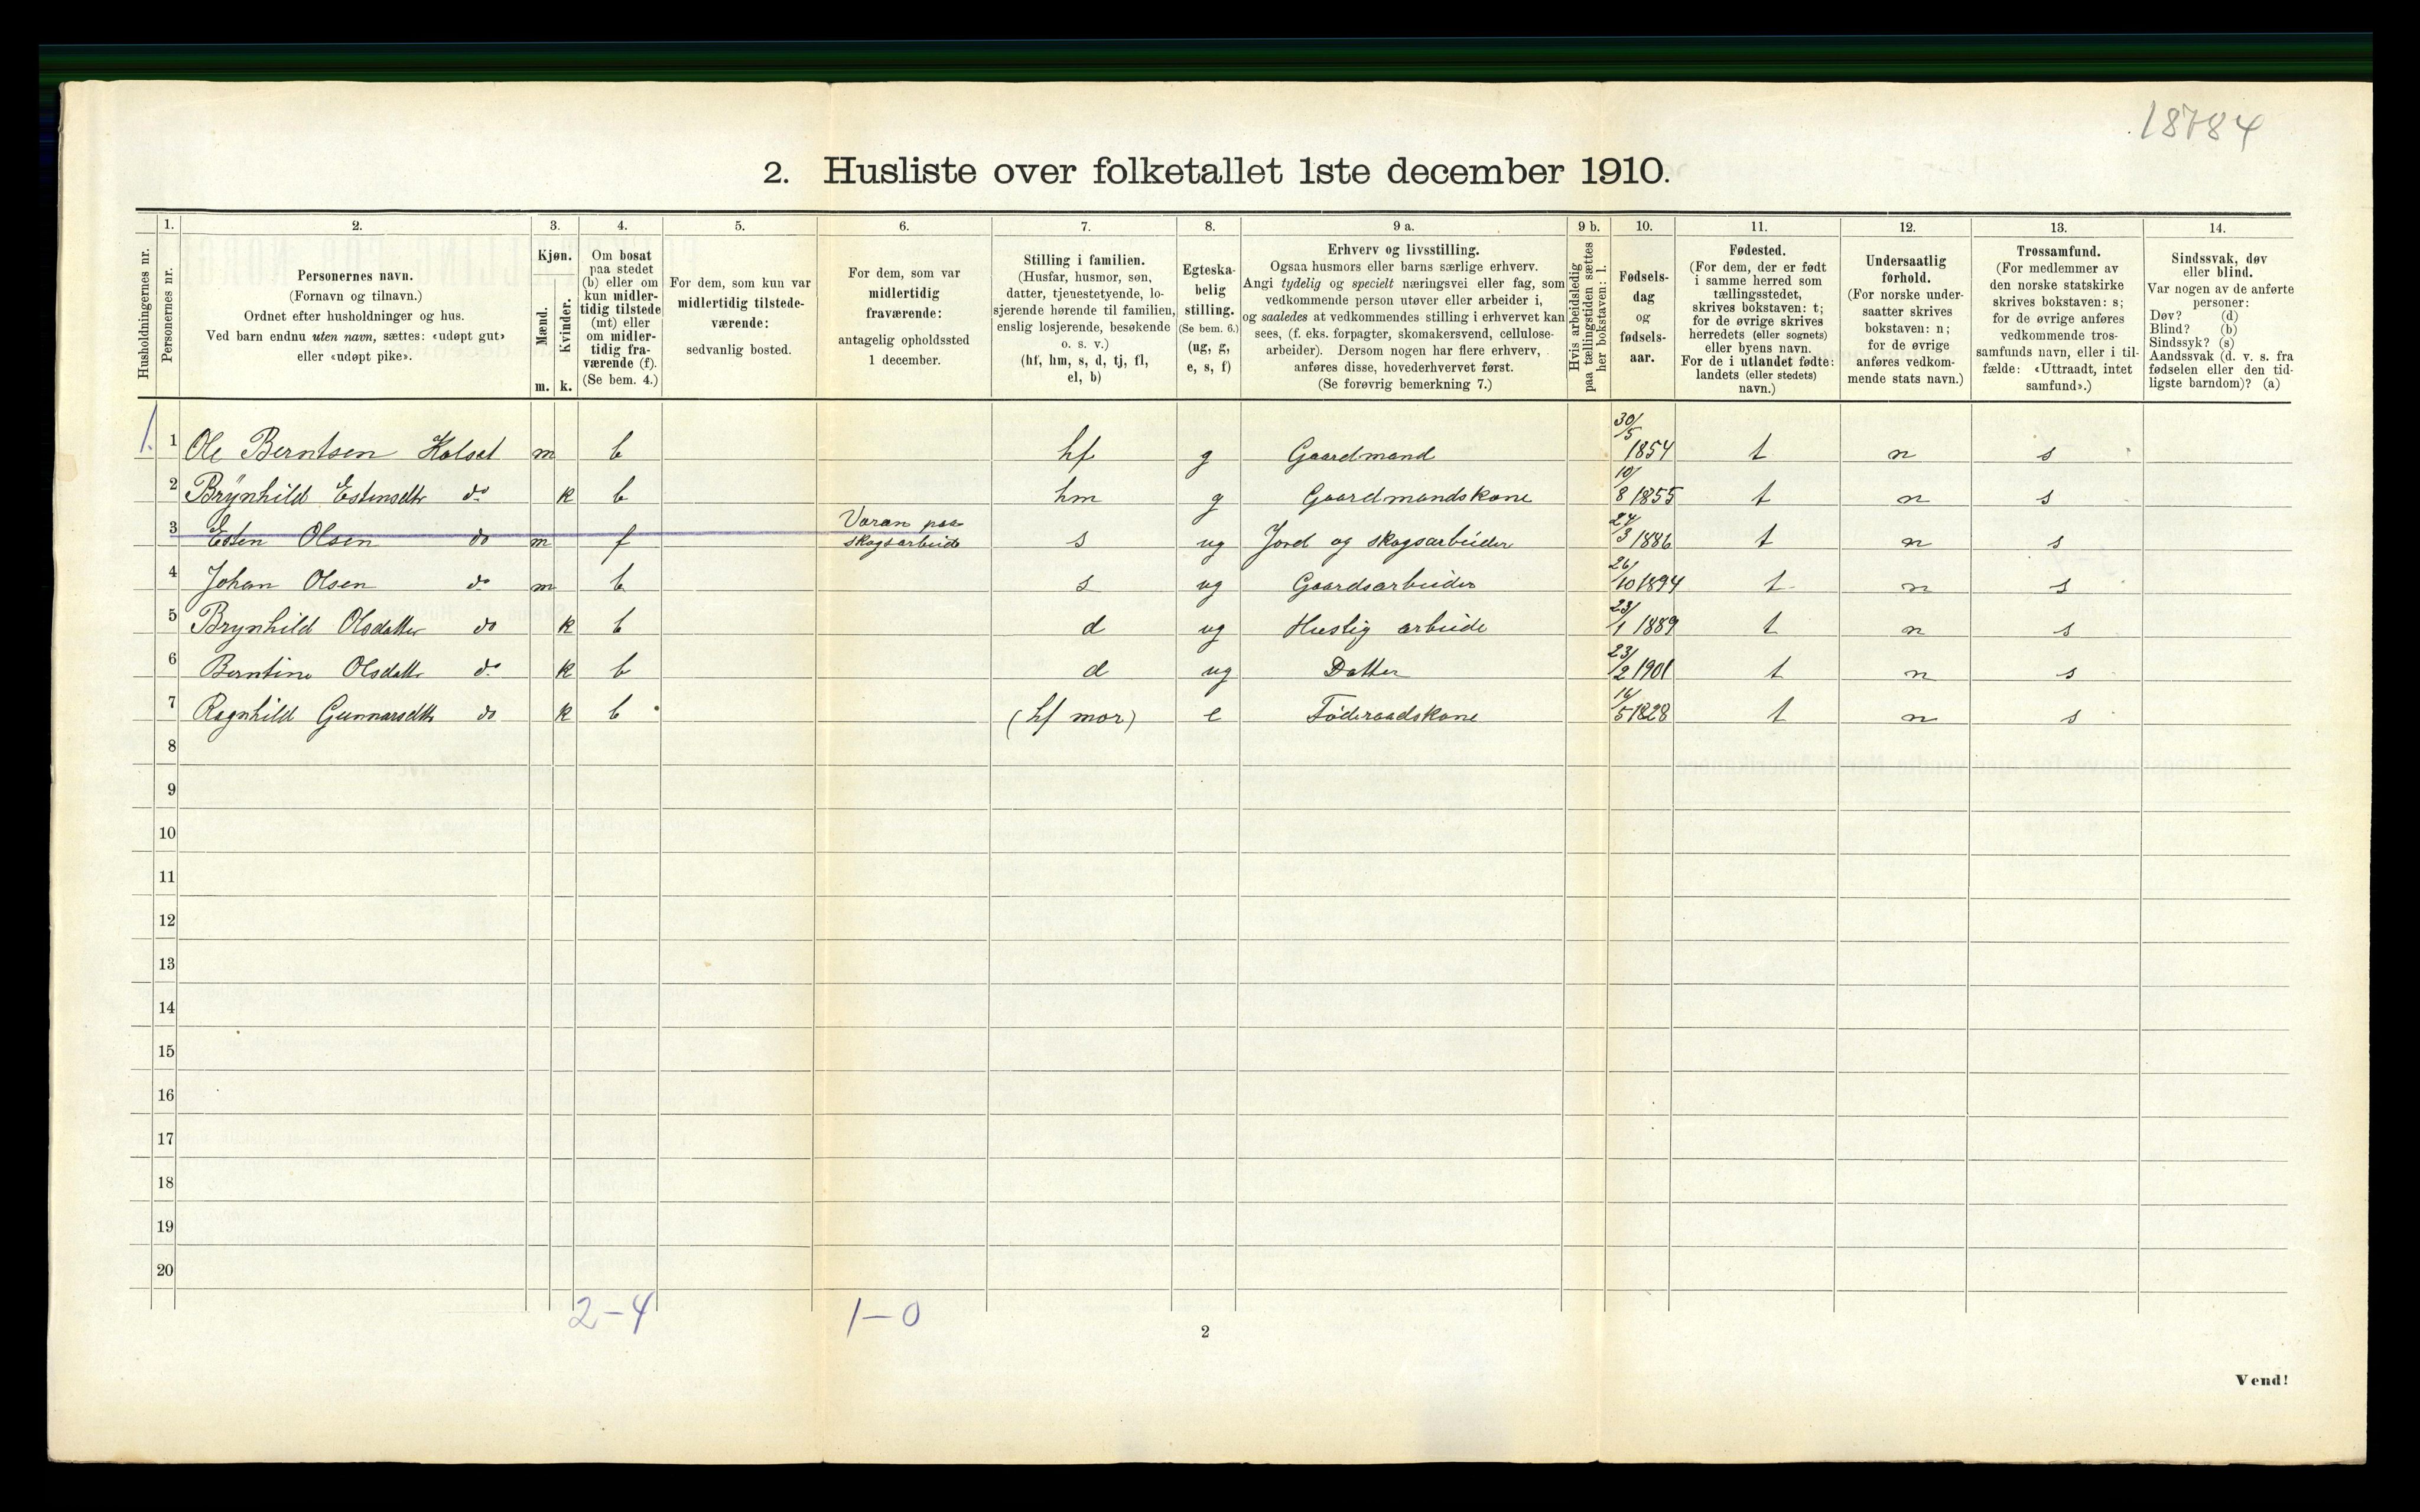 18784
2. Husliste over folketallet 1ste december 1910.
Husholdningernes nr.
1.
Personernes nr.
2.
Personernes navn.
(Fornavn og tilnavn.)
Ordnet efter husholdninger og hus.
Ved barn endnu uten navn, sættes: «udøpt gut»
eller «udøpt pike».
3.
Kjøn.
Mænd.
Kvinder.
m. k.
4.
Om bosat
paa stedet
(b) eller om
kun midler-
tidig tilstede
(mt) eller
om midler-
tidig fra-
værende (f).
(Se bem. 4.)
5.
For dem, som kun var
midlertidig tilstede-
værende:
sedvanlig bosted.
6.
For dem, som var
midlertidig
fraværende:
antagelig opholdssted
1 december.
7.
Stilling i familien.
(Husfar, husmor, søn,
datter, tjenestetyende, lo-
sjerende hørende til familien,
enslig losjerende, besøkende
o. s. v.)
(hf, hm, s, d, tj, fl,
el, b)
8.
Egteska-
belig
stilling.
(Se bem. 6.)
(ug, g,
e, s, f)
9 a.
Erhverv og livsstilling.
Ogsaa husmors eller barns særlige erhverv.
Angi tydelig og specielt næringsvei eller fag, som
vedkommende person utøver eller arbeider i,
og saaledes at vedkommendes stilling i erhvervet kan
sees, (f. eks. forpagter, skomakersvend, cellulose-
arbeider). Dersom nogen har flere erhverv,
anføres disse, hovederhvervet først.
(Se forøvrig bemerkning 7.)
9 b.
Hvis arbeidsledig
paa tællingstiden sættes
her bokstaven: l.
10.
Fødsels-
dag
og
fødsels-
aar.
11.
Fødested.
(For dem, der er født
i samme herred som
tællingsstedet,
skrives bokstaven: t;
for de øvrige skrives
herredets (eller sognets)
eller byens navn.
For de i utlandet fødte:
landets (eller stedets)
navn.)
12.
Undersaatlig
forhold.
(For norske under-
saatter skrives
bokstaven: n;
for de øvrige
anføres vedkom-
mende stats navn.)
13.
Trossamfund.
(For medlemmer av
den norske statskirke
skrives bokstaven: s;
for de øvrige anføres
vedkommende tros-
samfunds navn, eller i til-
fælde: «Uttraadt, intet
samfund».)
14.
Sindssvak, døv
eller blind.
Var nogen av de anførte
personer:
Døv? (d)
Blind? (b)
Sindssyk? (s)
Aandssvak (d. v. s. fra
fødselen eller den tid-
ligste barndom)? (a)
1. 1 Ole Berntsen m b hf g Gaardmand 30/5 1854 t n s
2 Brynhild Estensdtr do k b hm g Gaardmandskone 10/8 1855 t n s
3 Esten Olsen do m f paa skogsarbeide s ug Jord og skogsarbeider 24/3 1886 t n s
4 Johan Olsen do m b s ug Gaardsarbeider 26/10 1894 t n s
5 Brynhild Olsdatter do k b d ug Huslig arbeide 23/1 1889 t n s
6 Berntine Olsdatr do k b d ug Datter 23/2 1901 t n s
7 Ragnhild Gunnarsdtr do k b (hf mor) e Föderaadskone 16/5 1828 t n s
8
9
10
11
12
13
14
15
16
17
18
19
20
2-4 1-0
2
Vend!